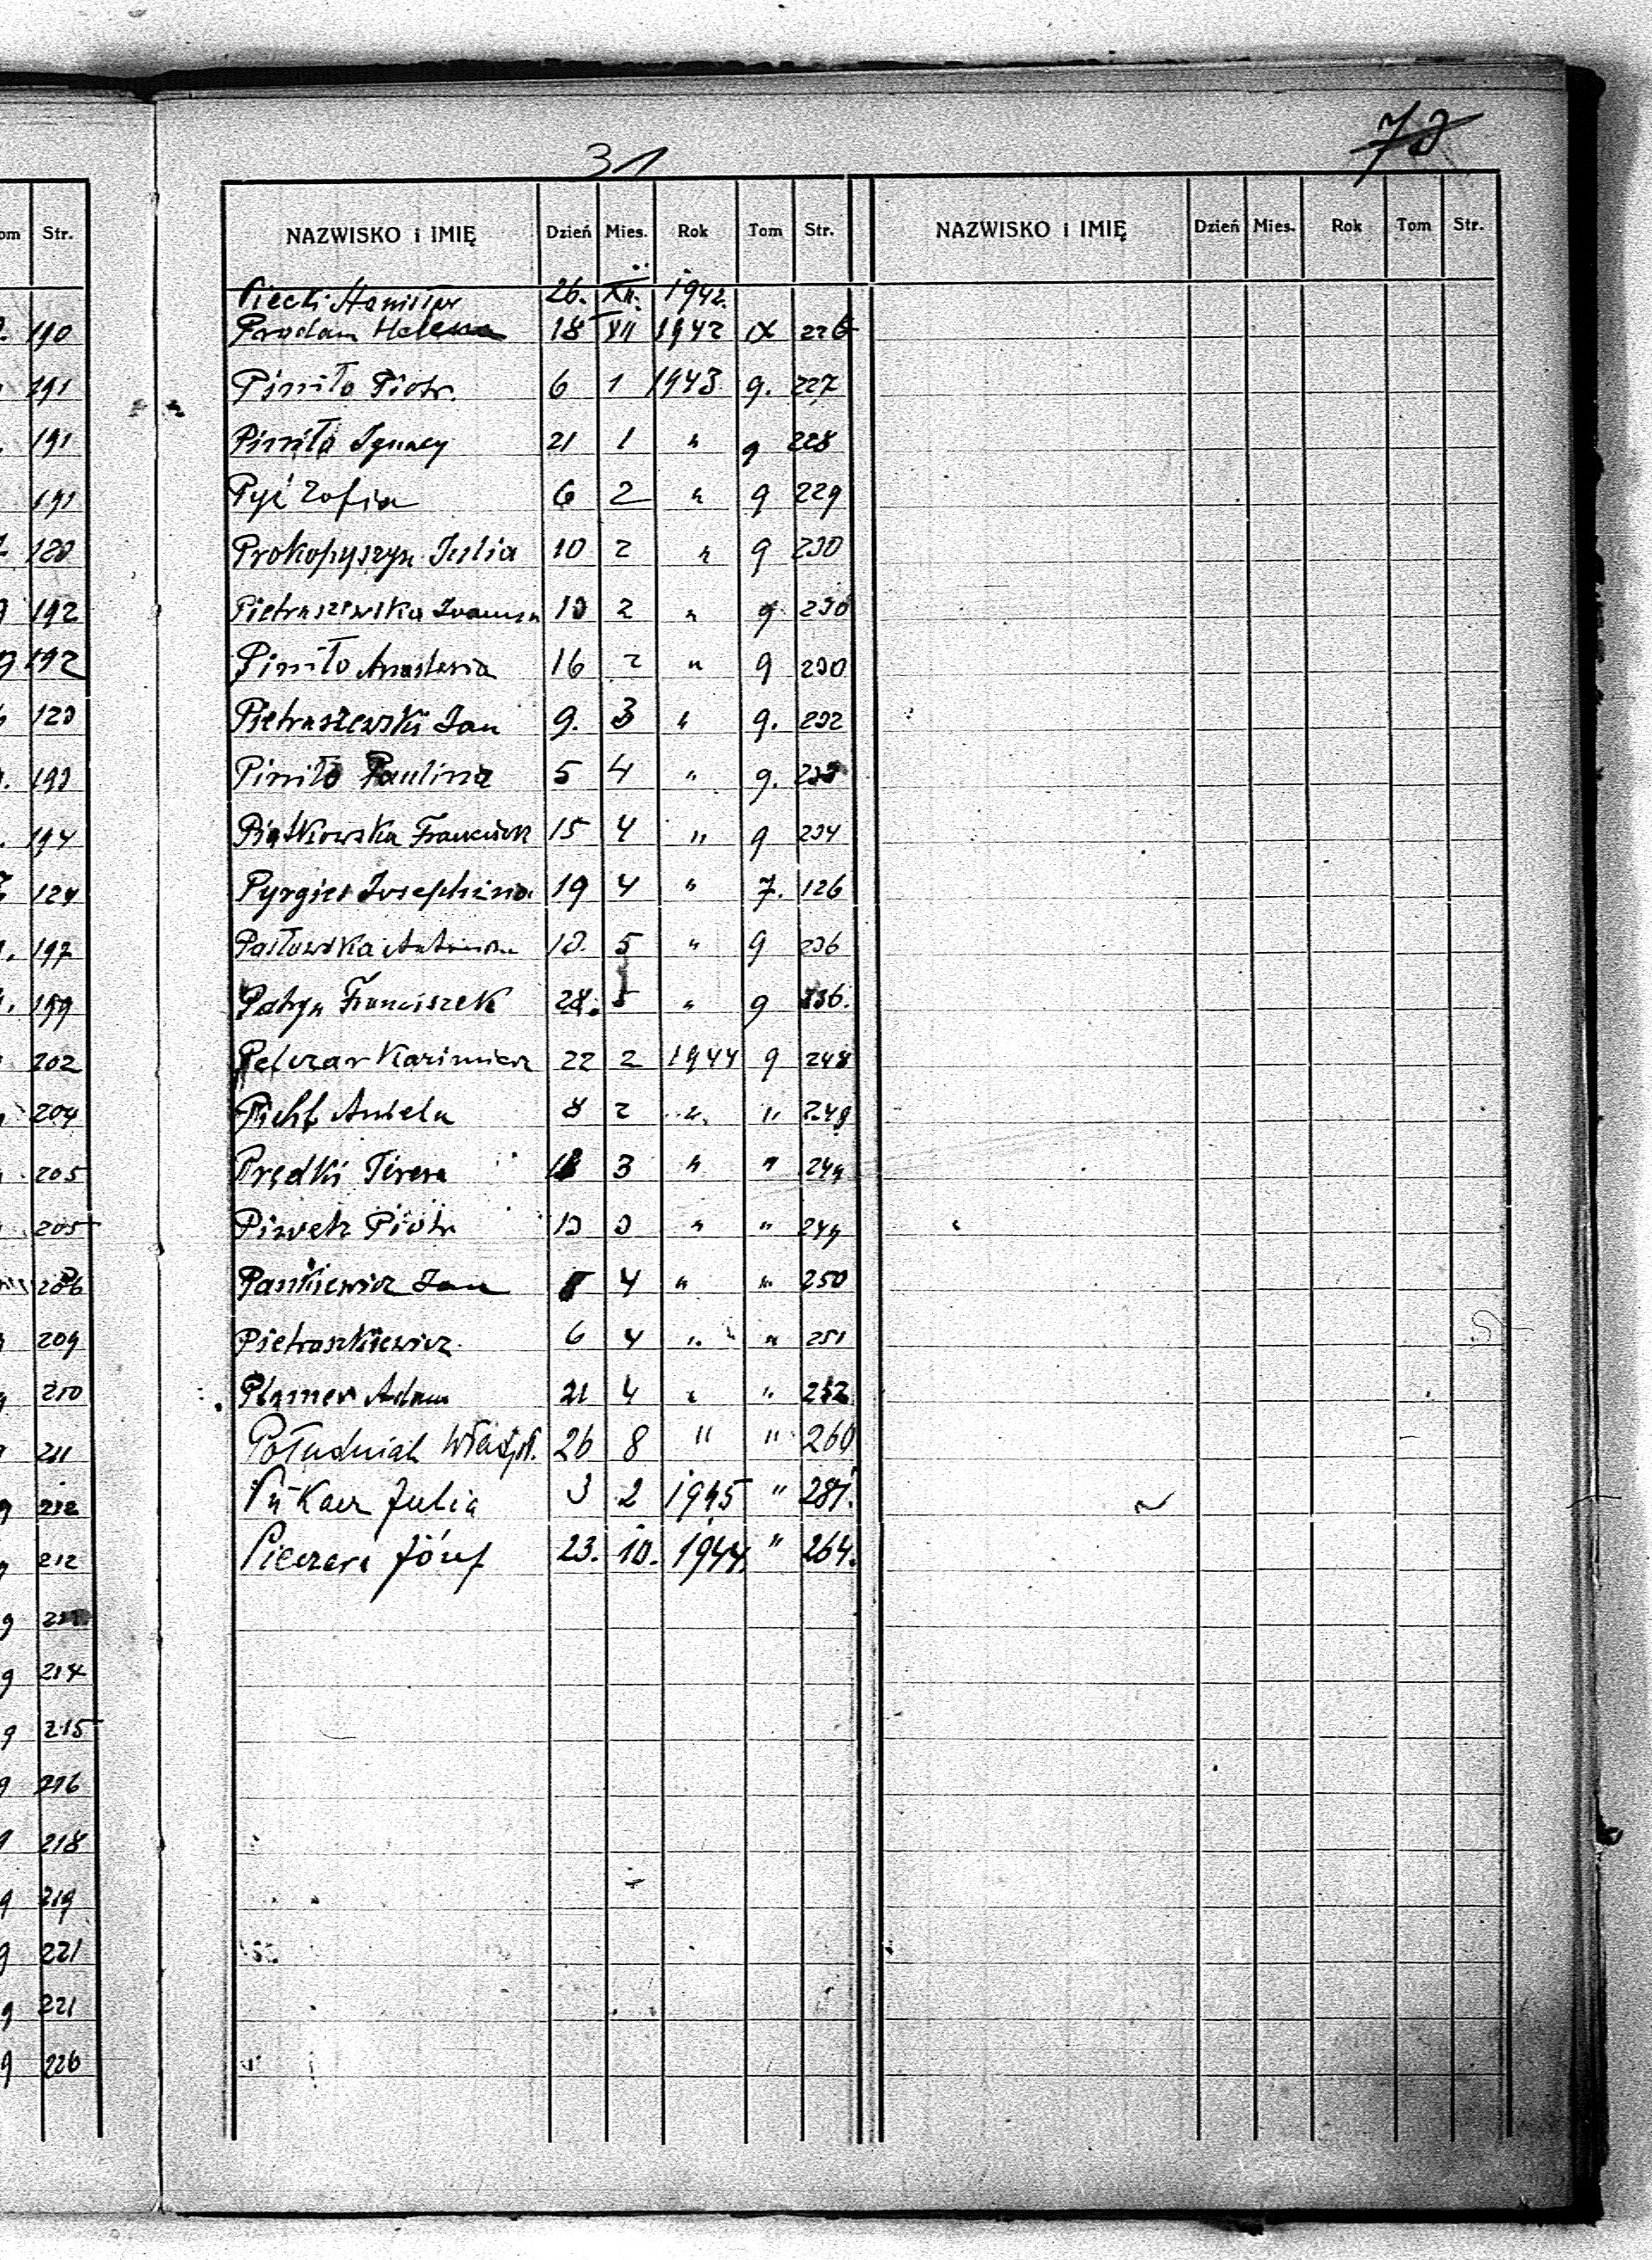 31
70
om Str.
NAZWISKO i IMIĘ Dzień Mies. Rok Tom Str.
NAZWISKO i IMIĘ Dzień Mies. Rok Tom Str.
Piecki Stanisław 26. XII. 1942.
190
Prodan Helena 18 XII 1942 IX 226
191
Piniło Piotr 6 1 1943 9. 227
191
Piniło Ignacy 21 1 " 9 228
191
Pyć Zofia 6 2 " 9 229
120
Prokopyszyn Julia 10 2 " 9 230
192
Pietraszewska 13 2 " 9 230
192
Piniło Anastasia 16 2 " 9 230
123
Pietraszewski Jan 9. 3 " 9. 232
193
Piniło Paulina 5 4 " 9. 233
194
Piątkowska 15 4 " 9 234
124
Pyrgies Josephina 19 4 " 7. 126
197
Pastowska 13. 5 " 9 236
199
Patryn Franciszek 28. 5 " 9 236.
202
Pelczar Kazimierz 22 2 1944 9 248
204
Aniela 8 2 " " 249
205
Prędki Teresa 18 3 " " 249
205
Piwek Piotr 13 3 " " 249
206
Paszkiewicz Jan 5 4 " " 250
209
Pietraszkiewicz 6 4 " " 251
210
Adam 21 4 " " 252
211
Południak Władysł. 26 8 " " 260
212
Julia 3 2 1945 " 281.
212
Józef 23. 10. 1944. " 264.
9
9 214
9 215
9 216
9 218
9 219
9 221
9 221
9 226